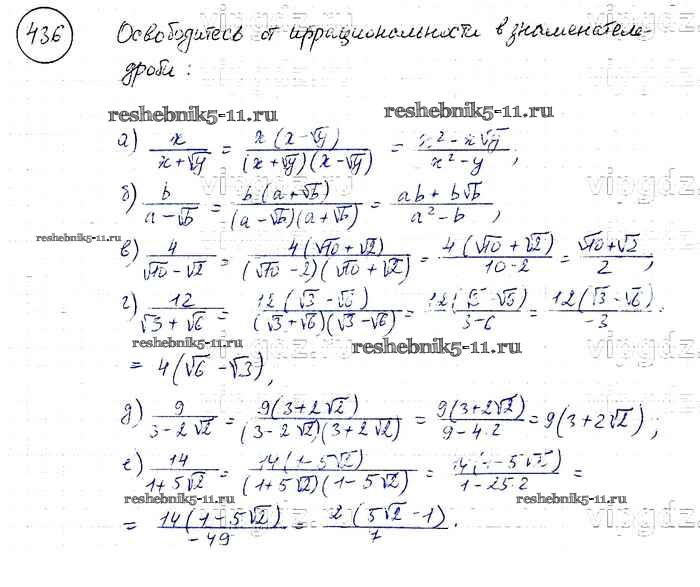 436 Освободитесь от иррациональности в знаменателе
дроби:
reshebnik5-11.ru reshebnik5-11.ru
а) x/(x+√y) = x(x-√y)/((x+√y)(x-√y)) = (x²-x√y)/(x²-y),
vipgdz.ru
б) b/(a-√b) = b(a+√b)/((a-√b)(a+√b)) = (ab+b√b)/(a²-b),
reshebnik5-11.ru
в) 4/(√10-√2) = 4(√10+√2)/((√10-2)(√10+√2)) = 4(√10+√2)/(10-2) = (√10+√2)/2;
г) 12/(√3+√6) = 12(√3-√6)/((√3+√6)(√3-√6)) = 12(√3-√6)/(3-6) = 12(√3-√6)/(-3) =
reshebnik5-11.ru reshebnik5-11.ru
= 4(√6-√3),
д) 9/(3-2√2) = 9(3+2√2)/((3-2√2)(3+2√2)) = 9(3+2√2)/(9-4·2) = 9(3+2√2);
е) 14/(1+5√2) = 14(1-5√2)/((1+5√2)(1-5√2)) = 14(1-5√2)/(1-25·2) =
reshebnik5-11.ru reshebnik5-11.ru
= 14(1-5√2)/(-49) = 2(5√2-1)/7.